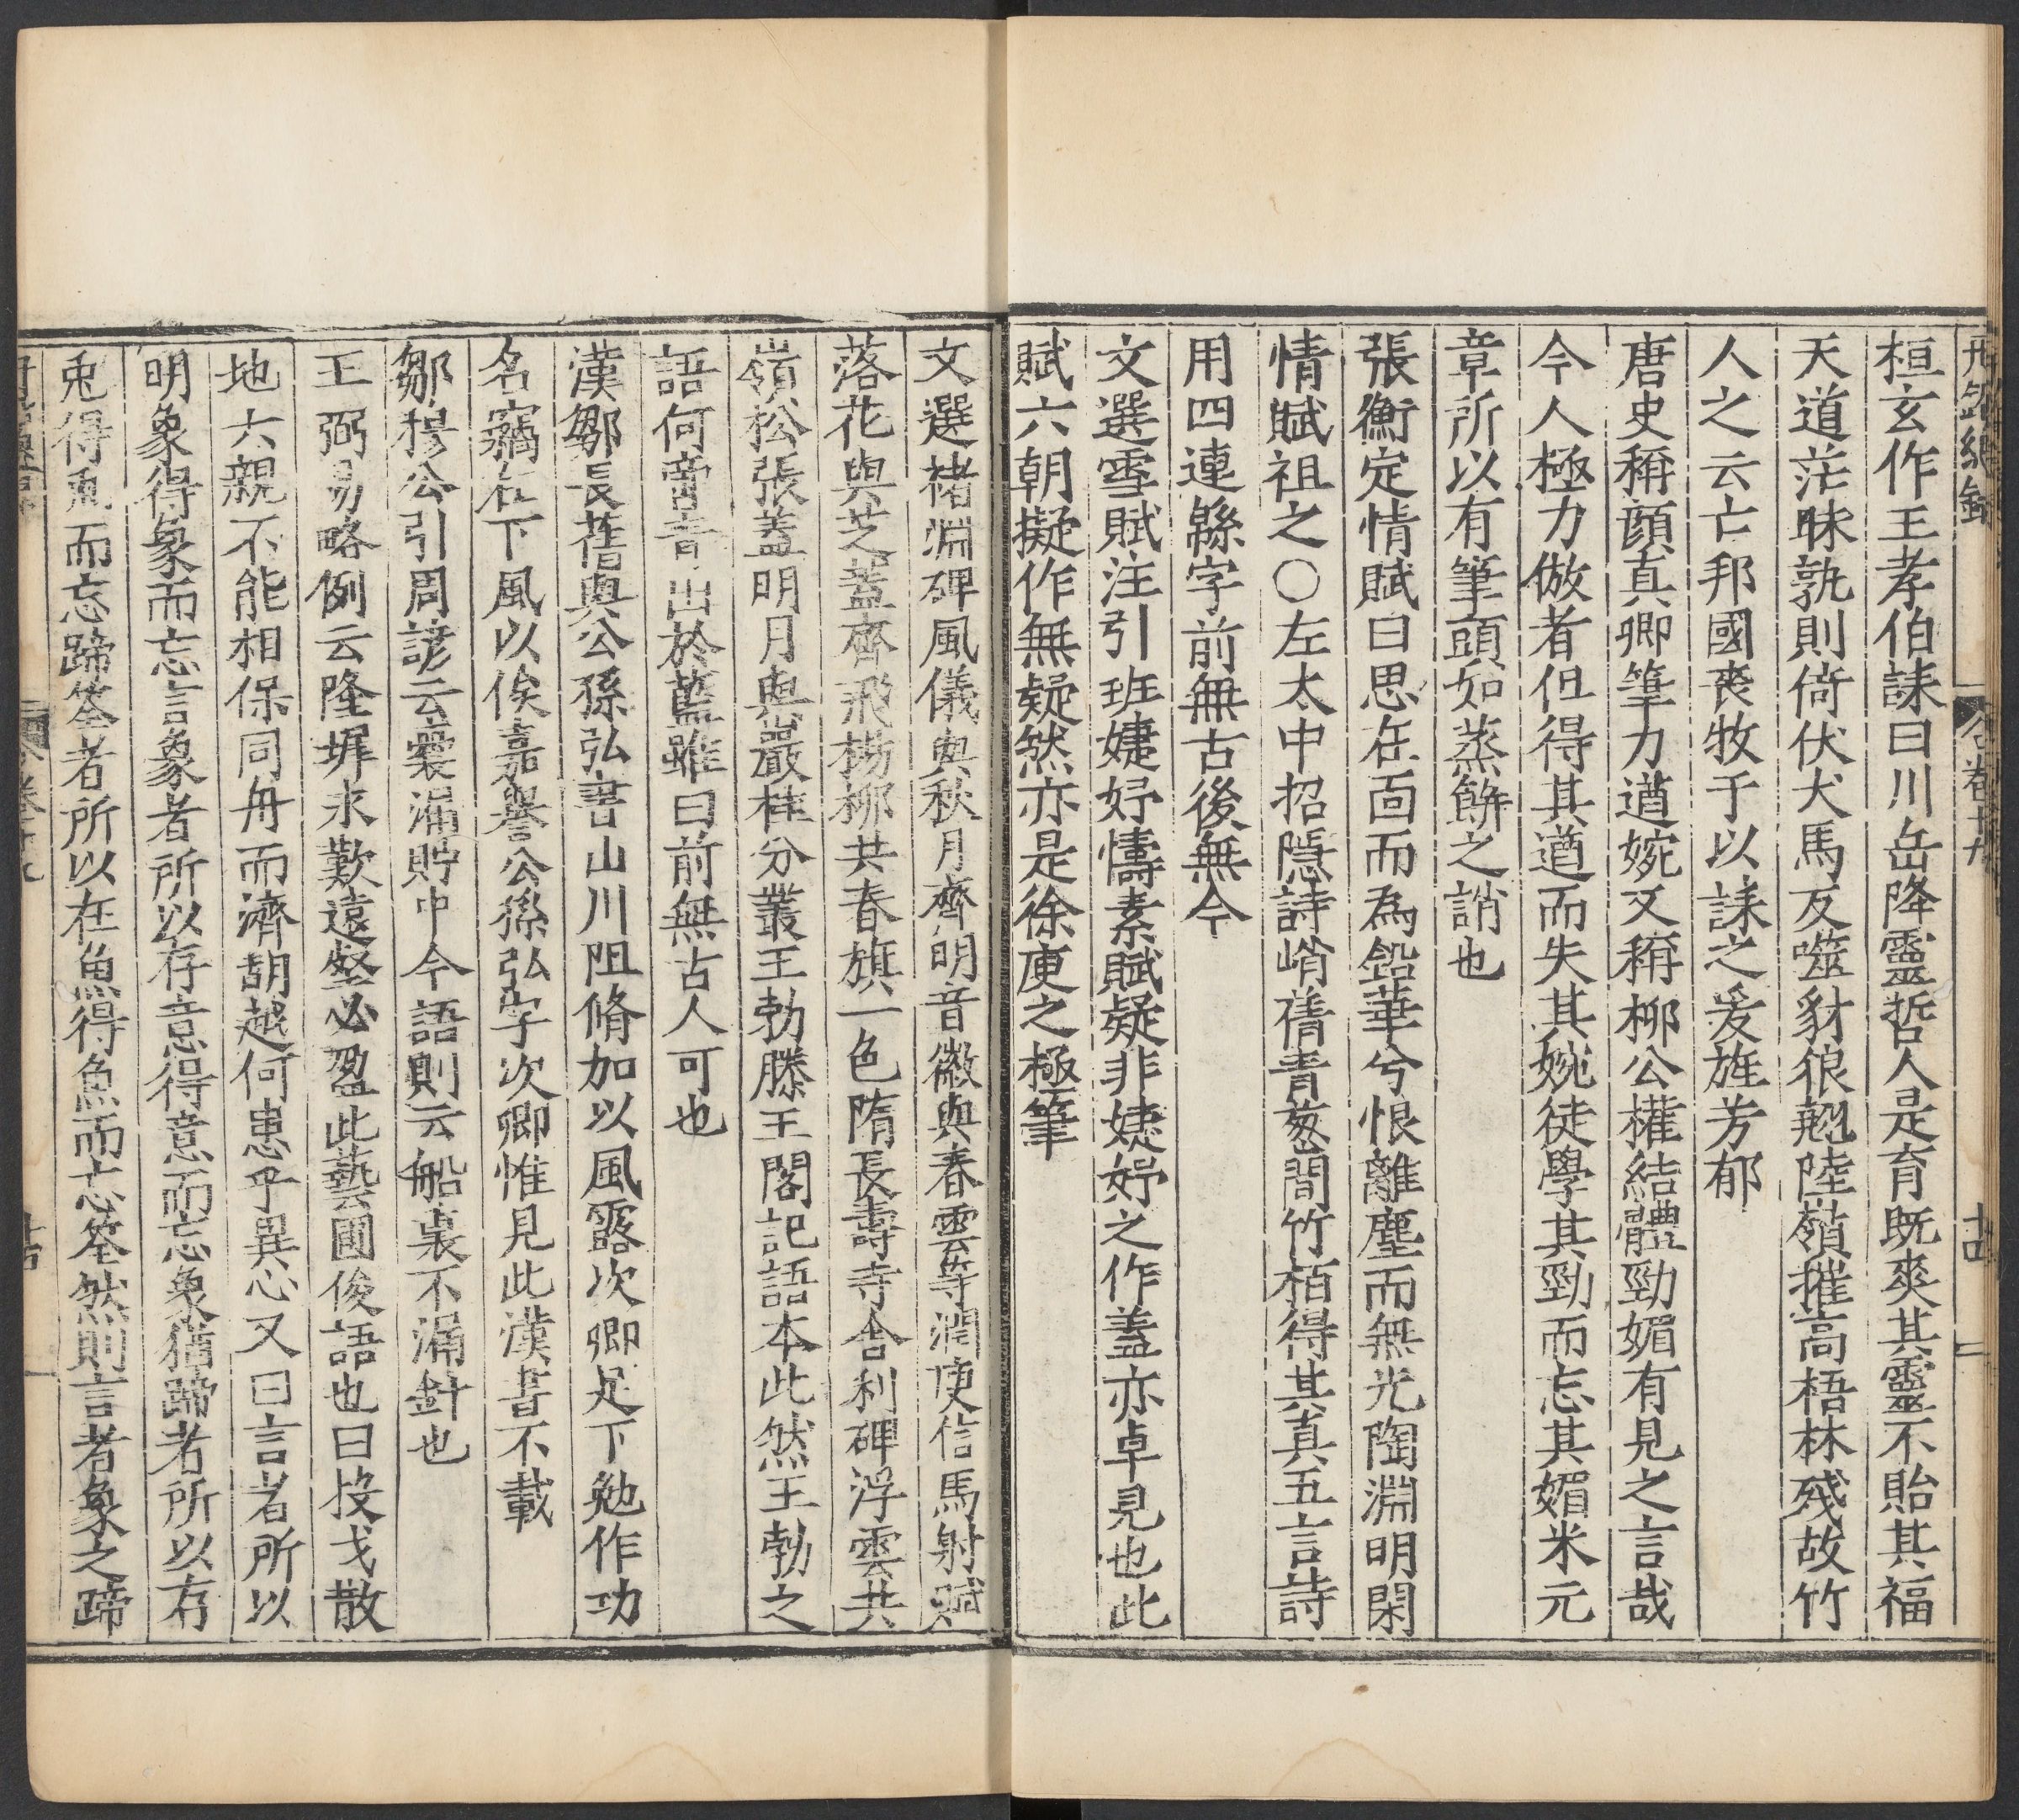 丹鉛總錄 卷十九 十四
桓玄作王孝伯誄曰川岳降靈哲人是育既爽其靈不貽其福
天道茫昧孰則倚伏犬馬反噬豺狼翹陸嶺摧高梧林殘故竹
人之云亡邦國喪牧于以誄之爰旌芳郁
唐史稱顔真卿筆力遒婉又稱柳公權結體勁媚有見之言哉
今人極力倣者但得其遒而失其婉徒學其勁而忘其媚米元
章所以有筆頭如蒸餅之誚也
張衡定情賦曰思在面而為鉛華兮恨離塵而無光陶淵明閑
情賦祖之〇左太中招隱詩峭蒨青葱間竹栢得其真五言詩
用四連緜字前無古後無今
文選雪賦注引班婕妤擣素賦疑非婕妤之作盖亦卓見也此
賦六朝擬作無疑然亦是徐庾之極筆
文選褚淵碑風儀與秋月齊明音徽與春雲等潤庾信馬射賦
落花與芝蓋齊飛楊柳共春旗一色隋長壽寺舍利碑浮雲共
嶺松張蓋明月與巖桂分叢王勃滕王閣記語本此然王勃之
語何啻青出於藍雖曰前無古人可也
漢鄒長蒨與公孫弘書山川阻脩加以風露次卿足下勉作功
名竊在下風以俟嘉譽公孫弘字次卿惟見此漢書不載
鄒穆公引周諺云囊漏貯中今語則云船裏不漏針也
王弼易略例云隆墀永歎遠壑必盈此藝圃俊語也曰投戈散
地六親不能相保同舟而濟胡越何患乎異心又曰言者所以
明象得象而忘言象者所以存意得意而忘象猶蹄者所以存
兎得兎而忘蹄筌者所以在魚得魚而忘筌然則言者象之蹄
卷十九 十四